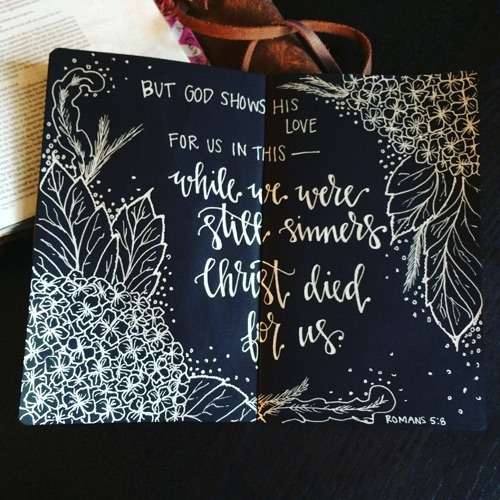 BUT GOD SHOWS HIS
LOVE
FOR US IN THIS —
while we were
still sinners
Christ died
for us.
ROMANS 5:8